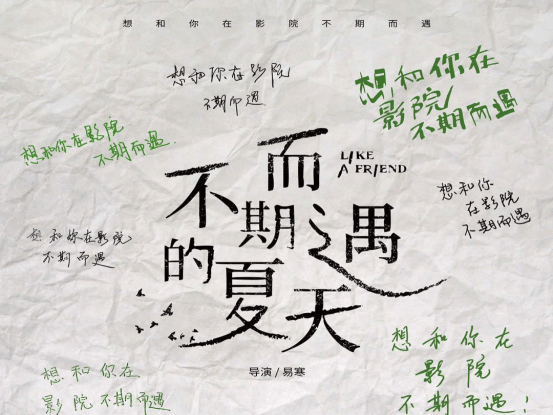 想和你在影院不期而遇
想和你在影院
不期而遇
想和你在
影院
不期而遇
想和你在影院
不期而遇
不期而遇
的夏天
LIKE
A FRIEND
想和你
在影院
不期而遇
想和你在影院
不期而遇
导演/易寒
想和你在
影院不期而遇
想和你在
影院
不期而遇!